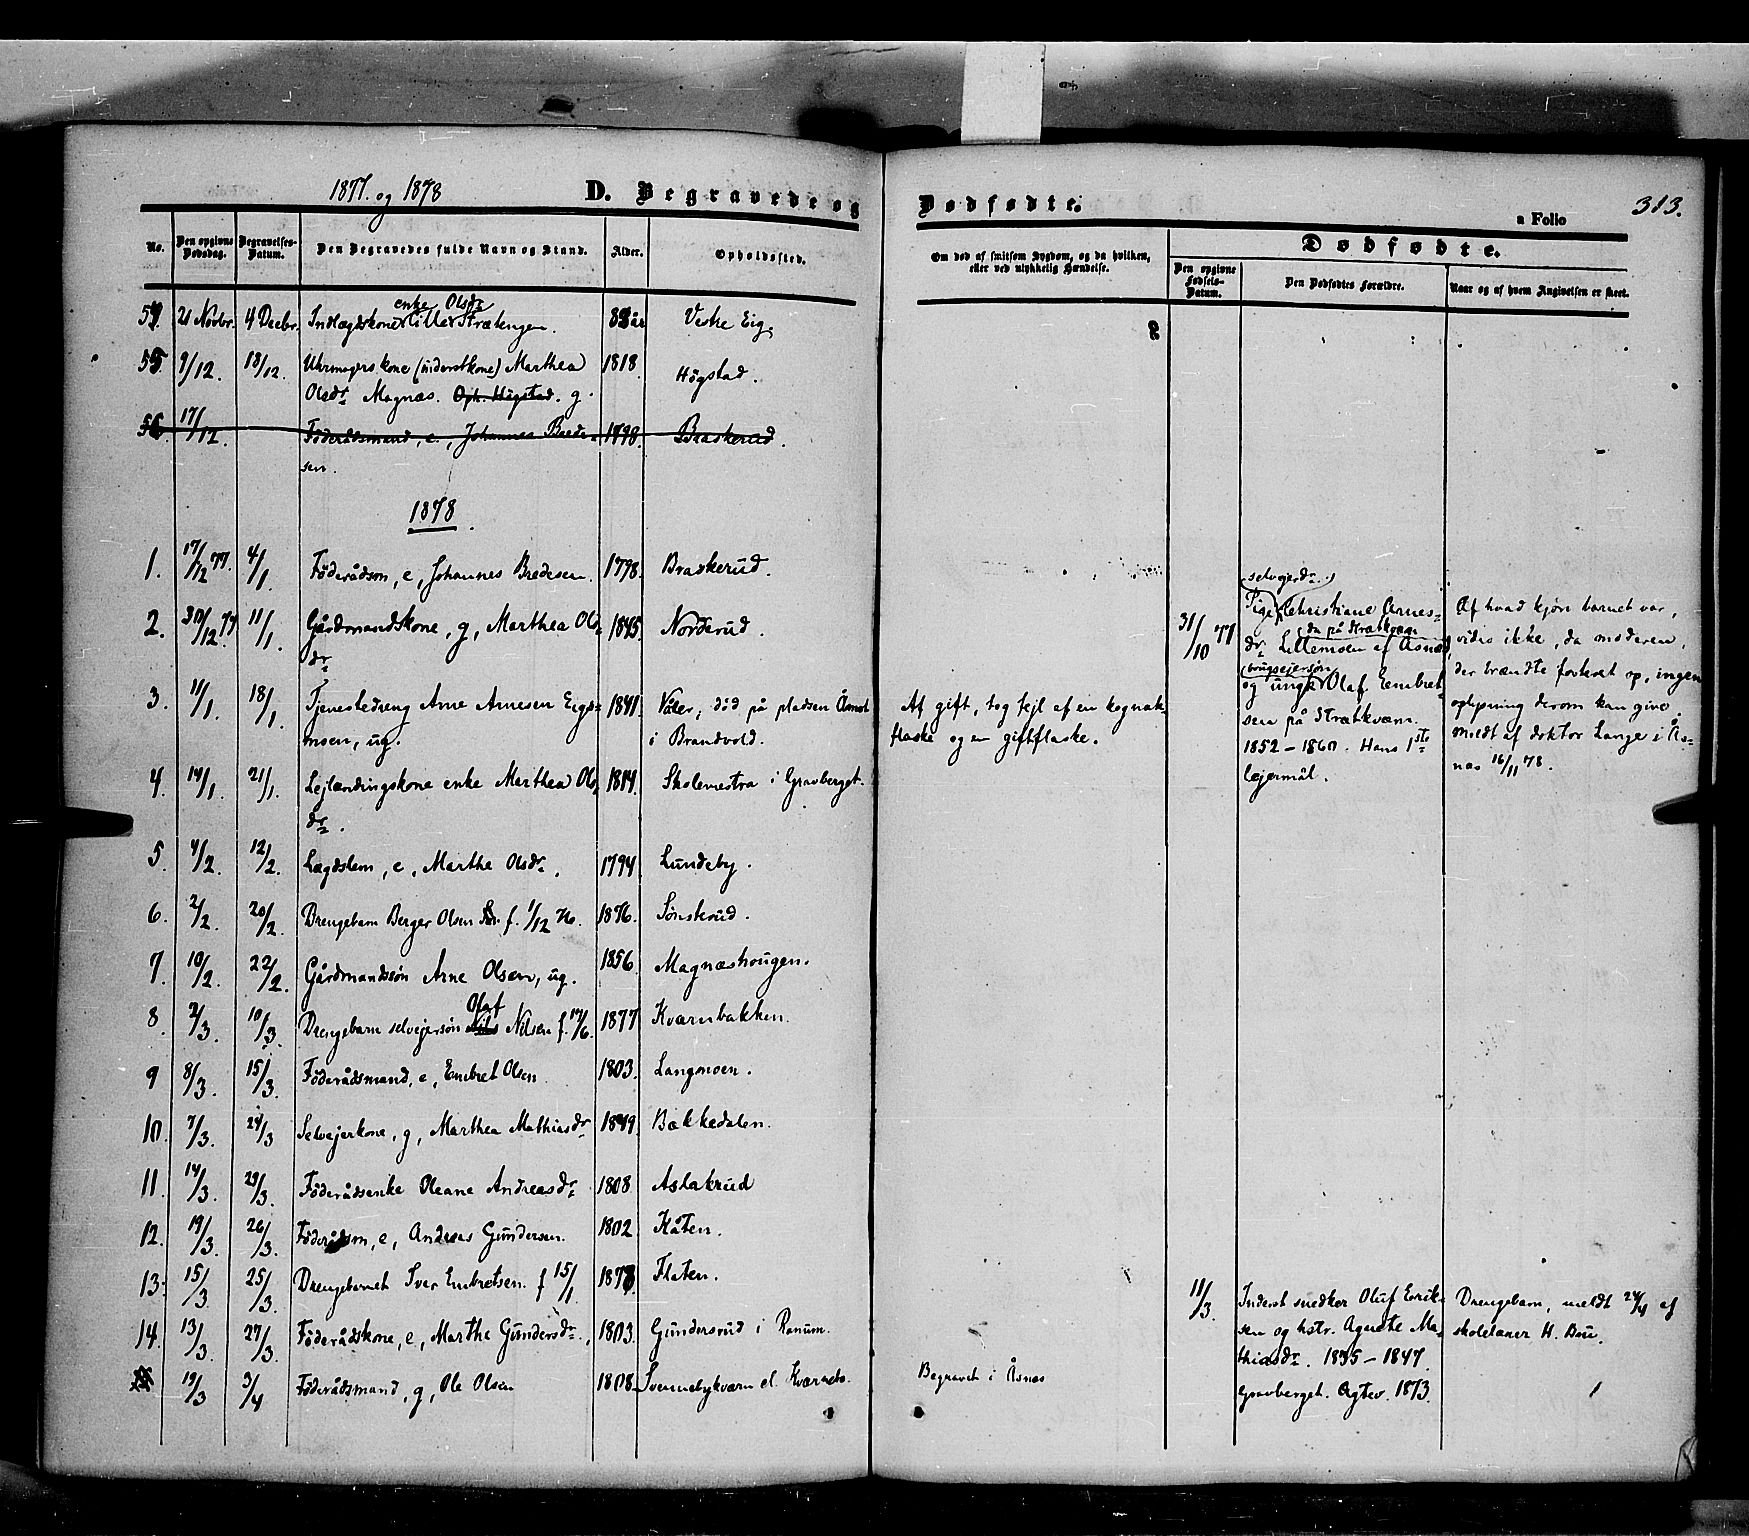 1877. og 1878 D. Begravede og Dødfødte.
a Folio 313.
No. Den opgivne Dødsdag. Begravelses-Datum. Den Begravedes fulde Navn og Stand. Alder. Opholdssted.
Om død af smitsom Sygdom, og da hvilken, eller ved ulykkelig Hændelse.
Dødfødte.
Den opgivne Fødsels-Datum. Den Dødfødtes Forældre. Naar og af hvem Angivelsen er skeet.
enke Olsdr
21 Novbr. 4 Decbr. Indlagdskone Strætengen. år Vestre Eig.
55 9/12. 18/12. Uhrmagerskone (inderstkone) Marthea 1818 Högstad.
Olsdr Magnæs. Oph. Högstad. g.
56 17/12. Föderådsmand, e., Johannes Brede- 1798. Braskerud.
sen.
1878.
1. 17/12 77. 4/1. Föderådsm, e, Johannes Bredesen. 1798. Braskerud.
2. 30/12 77 11/1. Gårdmandskone, g, Marthea Ols- 1845 Norderud.
dr
3. 11/1. 18/1. Tjenestedreng Arne Arnesen Eigs- 1841. Våler, död på pladsen Åsmot
moen, ug. i Brandvold.
Af gift, tog fejl af en kognak-
flaske og en giftflaske.
4. 14/1. 21/1. Lejlændingskone enke Marthea Ols- 1814. Skolemestra i Gravberget.
dr.
5. 4/2. 12/2. Lægdslem, e, Marthe Olsdr. 1794 Lundeby.
6. 2/2. 20/2. Drengebarn Berger Olsen f. 1/12 76. 1876. Sönskrud.
7. 10/2. 22/2. Gårdmandssön Arne Olsen, ug. 1856 Magnæshougen.
Olaf
8. 2/3. 10/3. Drengebarn selvejersön Nils Nilsen f. 17/6. 1877 Kværnbakken.
9 8/3. 15/3. Föderådsmand, e, Embret Olsen 1803. Langmoen.
10. 7/3. 24/3 Selvejerkone, g, Marthea Mathiasdr 1849. Bakkedalen.
11. 14/3. 29/3. Föderådsenke Oleane Andreasdr 1808. Aslakrud
12. 19/3. 26/3. Föderådsm, e, Andreas Gundersen. 1802. Kåten.
13. 15/3. 25/3. Drengebarnet Iver Embretsen. f 15/1. 1878. Flaten.
14. 13/3. 27/3. Föderådskone, e, Marthe Gundersdr. 1803. Gundersrud i Ranum.
19/3 3/4 Föderådsmand, g, Ole Olsen 1808. Svennebykværn el. Kværnets.
Begravet i Åsnes
selvejerdr.
31/10 77 Pige Christiane Arnes-
da på Strætkværn
dr Lillemoen af Åsnes,
brugsejersön
og ungk. Olaf Embret-
sen på Strætkværn.
1852 – 1860. Hans 1ste
lejermål.
Af hvad kjön barnet var,
vides ikke, da moderen,
der brændte fosteret op, ingen
oplysning derom kan give.
Meldt af doktor Lange i Ås-
nes 16/11 78.
11/3. Inderst snedker Oluf Erik-
sen og hstr. Agnete Ma-
thiasdr. 1835 – 1847.
Gravberget. Ægtev. 1873.
Drengebarn, meldt 24/4 af
skolelærer H. Bru.